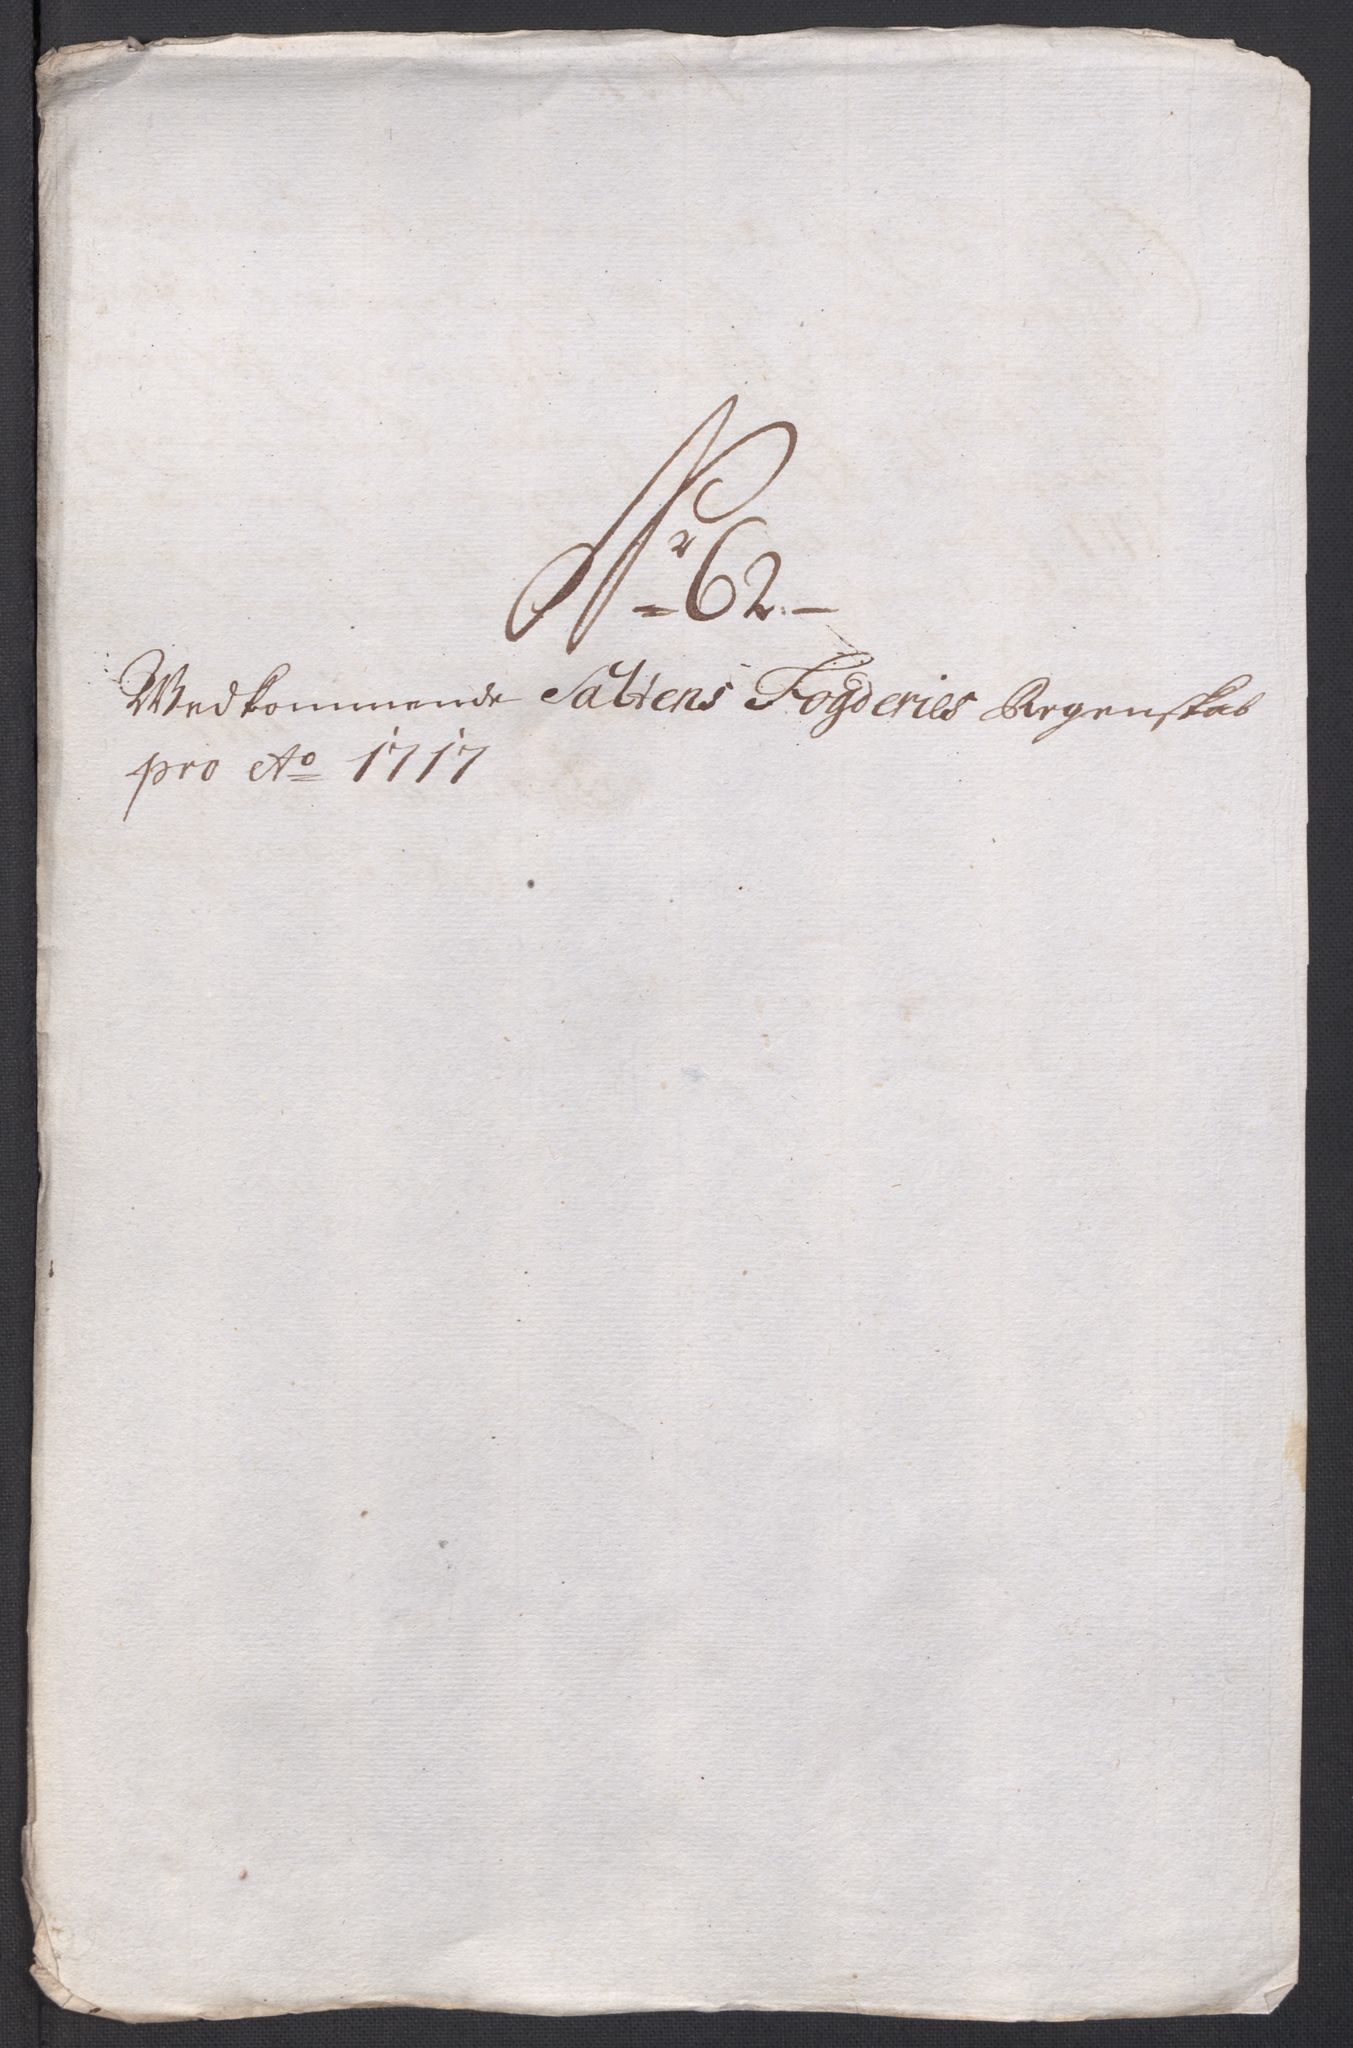 Nr 62.
Wedkommende Saltens Fogderies Regenskab
pro Ao 1717